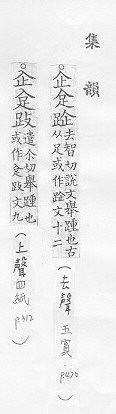 集韻
。企𠈮 去智切說文舉踵也古从足或作 文十二 (去聲 五寘 p.470)
。企𠈮跂 遣尒切舉踵也或作𠈮跂文九 (上聲 四紙 p.312)